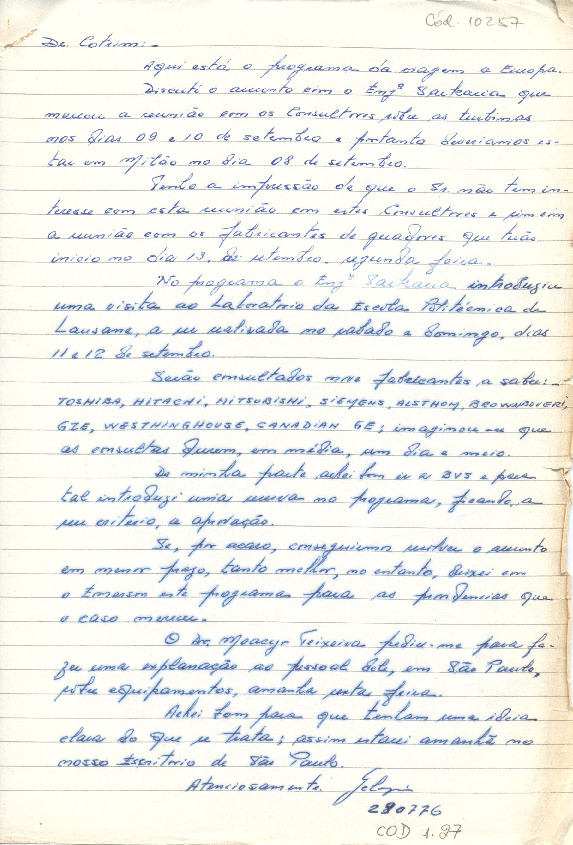 Cód. 10257
Dr. Cotrim:-
Aqui está o programa da viagem a Europa.
Discuti o assunto com o Engº Sarkaria que
marcou a reunião com os Consultores sobre as turbinas
nos dias 09 e 10 de setembro e portanto deveriamos es-
tar em Milão no dia 08 de setembro.
Tenho a impressão de que o Sr. não tem in-
teresse com esta reunião com estes Consultores e sim com
a reunião com os fabricantes de geradores que terão
inicio no dia 13, de setembro, segunda feira.
No programa o Engº Sarkaria introduziu
uma visita ao Laboratorio da Escola Politécnica de
Lausane, a ser realizada no sabado e domingo, dias
11 e 12 de setembro.
Serão consultados nove fabricantes a saber:-
TOSHIBA, HITACHI, MITSUBISHI, SIEMENS, ALSTHOM, BROWN BOVERI,
GZE, WESTHINGHOUSE, CANADIAN GE; imaginou-se que
as consultas durem, em média, um dia e meio.
De minha parte achei bom ir a BVS e para
tal introduzi uma reserva no programa, ficando, a
seu criterio, a aprovação.
Se, por acaso, conseguirmos resolver o assunto
em menor prazo, tanto melhor, no entanto, deixei com
o Emerson este programa para as providencias que
o caso merecer.
O Dr. Moacyr Teixeira pediu-me para fa-
zer uma explanação ao pessoal dele, em São Paulo,
sobre equipamentos, amanhã sexta feira.
Achei bom para que tenham uma ideia
clara do que se trata; assim estarei amanhã no
nosso Escritorio de São Paulo.
Atenciosamente.
290776
COD 1.27